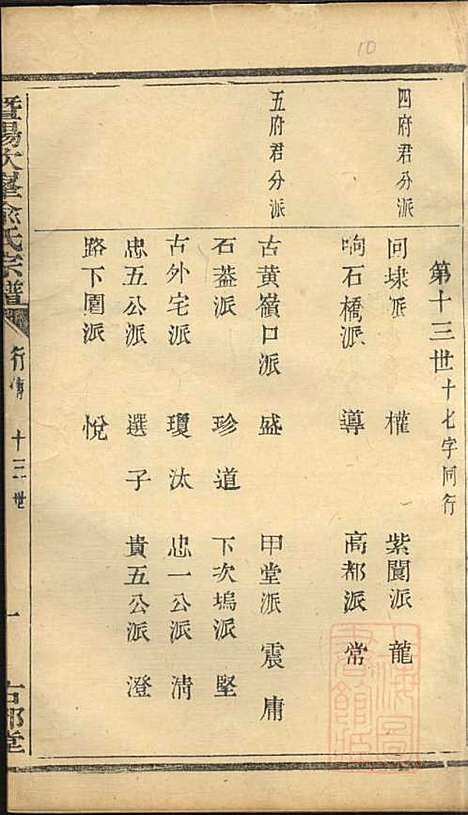 10
第十三世十七字同行
四府君分派
回埭派 權 紫閬派 龍
响石橋派 導 高都派 常
五府君分派
古黄嶺口派 盛 甲堂派 震 庸
石葢派 珍 道 下次塢派 堅
古外宅派 瓊 汰 忠一公派 清
忠五公派 選 子 貴五公派 澄
路下園派 悅
暨陽次峯俞氏宗譜
行傳 十三世
一